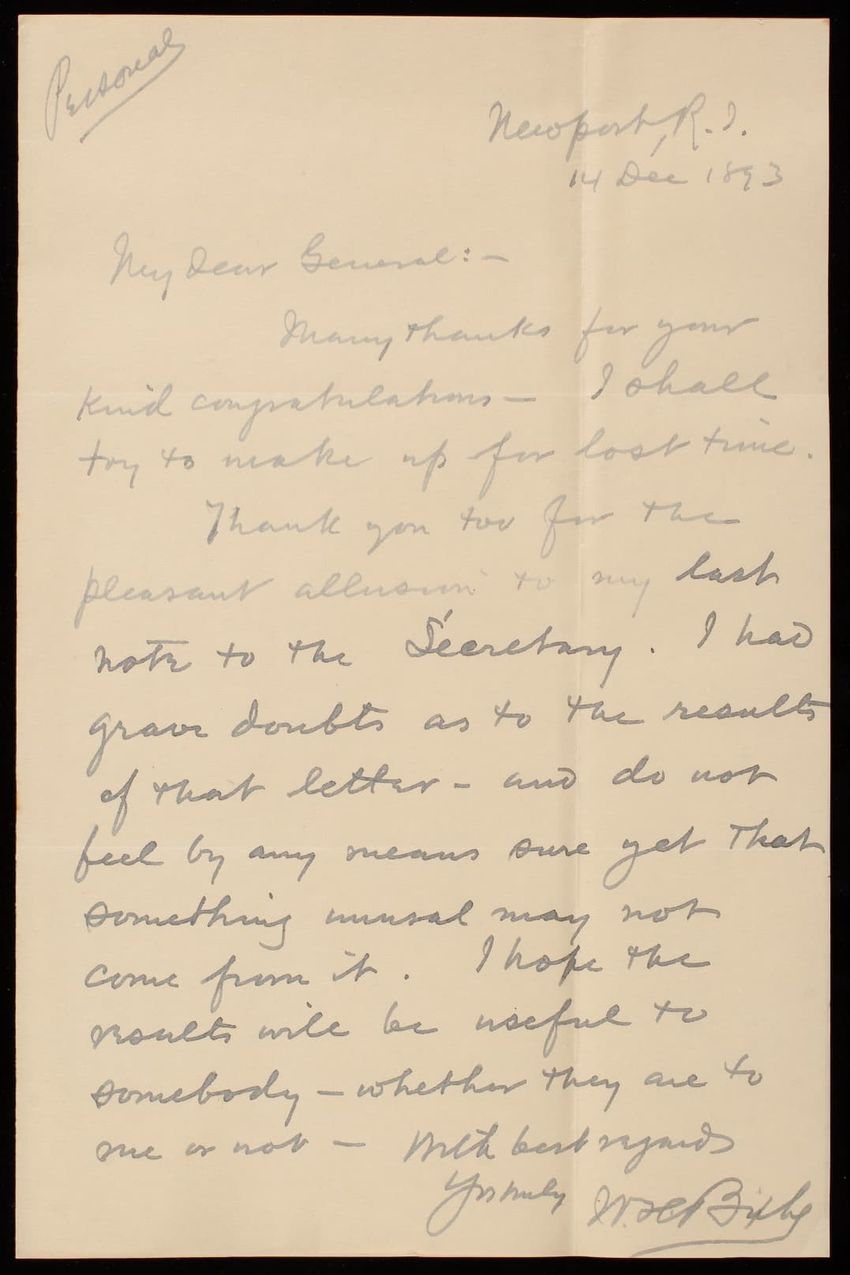 Personal
Newport, R.I.
14 Dec 1893
My dear General:—
Many thanks for your
kind congratulations — I shall
try to make up for lost time.
Thank you too for the
pleasant allusion to my last
note to the Secretary. I had
grave doubts as to the results
of that letter - and do not
feel by any means sure yet that
something unusal may not
come from it. I hope the
results will be useful to
somebody — whether they are to
me or not — With best regards
Yrs truly W.H. Bixby